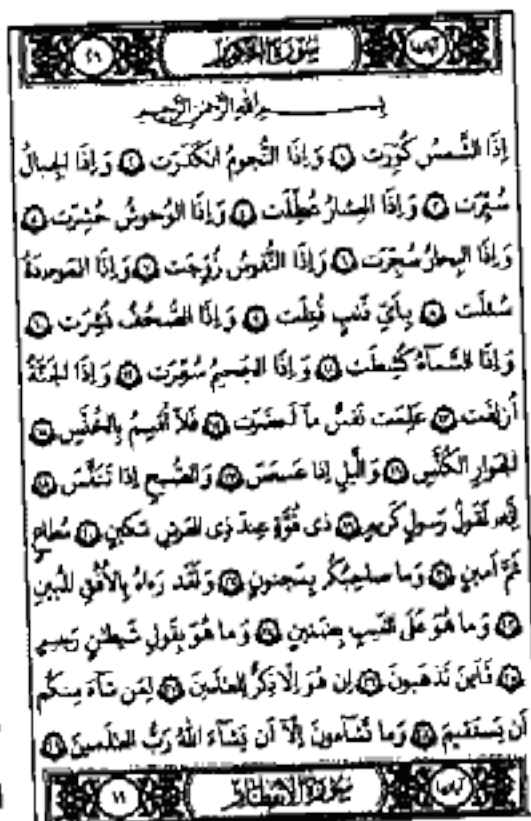 آياتها سورة التكوير ٢٩
بِسْمِ اللَّهِ الرَّحْمَٰنِ الرَّحِيمِ
إِذَا الشَّمْسُ كُوِّرَتْ ١ وَإِذَا النُّجُومُ انكَدَرَتْ ٢ وَإِذَا الْجِبَالُ
سُيِّرَتْ ٣ وَإِذَا الْعِشَارُ عُطِّلَتْ ٤ وَإِذَا الْوُحُوشُ حُشِرَتْ ٥
وَإِذَا الْبِحَارُ سُجِّرَتْ ٦ وَإِذَا النُّفُوسُ زُوِّجَتْ ٧ وَإِذَا الْمَوْءُودَةُ
سُئِلَتْ ٨ بِأَيِّ ذَنبٍ قُتِلَتْ ٩ وَإِذَا الصُّحُفُ نُشِرَتْ ١٠
وَإِذَا السَّمَاءُ كُشِطَتْ ١١ وَإِذَا الْجَحِيمُ سُعِّرَتْ ١٢ وَإِذَا الْجَنَّةُ
أُزْلِفَتْ ١٣ عَلِمَتْ نَفْسٌ مَّا أَحْضَرَتْ ١٤ فَلَا أُقْسِمُ بِالْخُنَّسِ ١٥
الْجَوَارِ الْكُنَّسِ ١٦ وَاللَّيْلِ إِذَا عَسْعَسَ ١٧ وَالصُّبْحِ إِذَا تَنَفَّسَ ١٨
إِنَّهُ لَقَوْلُ رَسُولٍ كَرِيمٍ ١٩ ذِي قُوَّةٍ عِندَ ذِي الْعَرْشِ مَكِينٍ ٢٠ مُّطَاعٍ
ثَمَّ أَمِينٍ ٢١ وَمَا صَاحِبُكُم بِمَجْنُونٍ ٢٢ وَلَقَدْ رَءَاهُ بِالْأُفُقِ الْمُبِينِ
٢٣ وَمَا هُوَ عَلَى الْغَيْبِ بِضَنِينٍ ٢٤ وَمَا هُوَ بِقَوْلِ شَيْطَانٍ رَّجِيمٍ
٢٥ فَأَيْنَ تَذْهَبُونَ ٢٦ إِنْ هُوَ إِلَّا ذِكْرٌ لِّلْعَالَمِينَ ٢٧ لِمَن شَاءَ مِنكُمْ
أَن يَسْتَقِيمَ ٢٨ وَمَا تَشَاءُونَ إِلَّا أَن يَشَاءَ اللَّهُ رَبُّ الْعَالَمِينَ ٢٩
آياتها سورة الانفطار ١٩